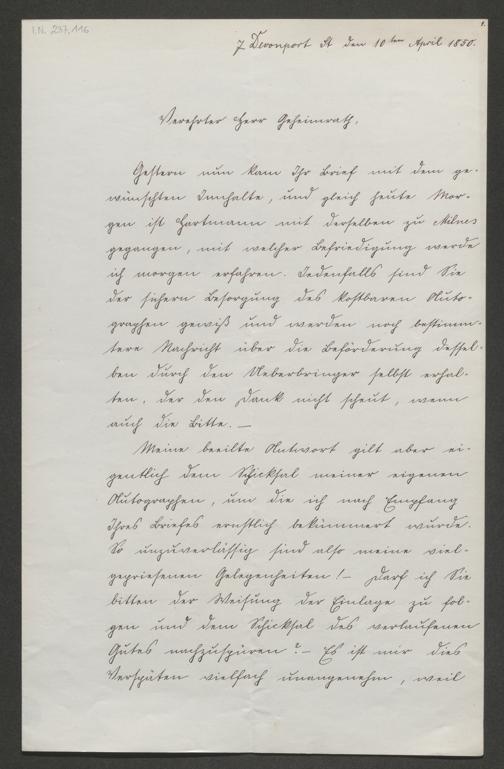 I.N. 237.116
1.
7 Devonport St den 10ten April 1850.
Verehrter Herr Geheimrath,
Gestern nun kam Ihr Brief mit dem ge-
wünschten Innhalte, und gleich heute Mor-
gen ist Hartmann mit derselben zu Milnes
gegangen, mit welcher Befriedigung werde
ich morgen erfahren. Jedenfalls sind Sie
der sichern Besorgung des kostbaren Auto-
graphen gewiß und werden noch bestimm-
tere Nachricht über die Beförderung dessel-
ben durch den Ueberbringer selbst erhal-
ten, der den Dank nicht scheut, wenn
auch die Bitte. —
Meine beeilte Antwort gilt aber ei-
gentlich dem Schicksal meiner eigenen
Autographen, um die ich nach Empfang
Ihres Briefes ernstlich bekümmert wurde.
So unzuverlässig sind also meine viel-
gepriesenen Gelegenheiten! — Darf ich Sie
bitten der Weisung der Einlage zu fol-
gen und dem Schicksal des verlaufenen
Gutes nachzuspüren? — Es ist mir dies
Verspäten vielfach unangenehm, weil